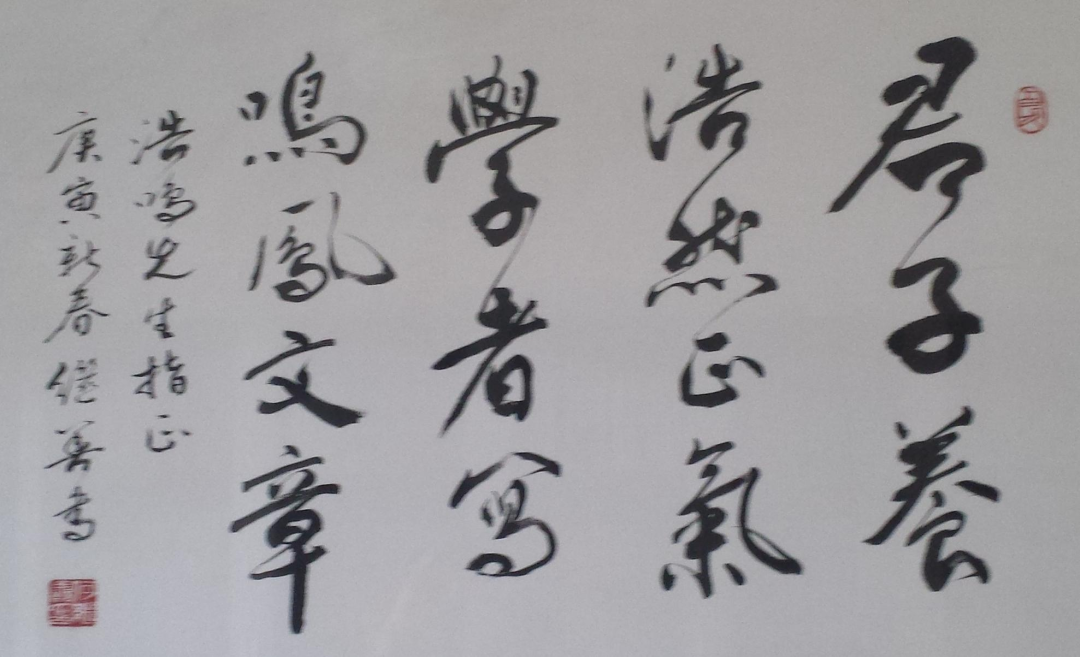 君子養
浩然正氣
學者寫
鳴鳳文章
浩鳴先生指正
庚寅新春继善書